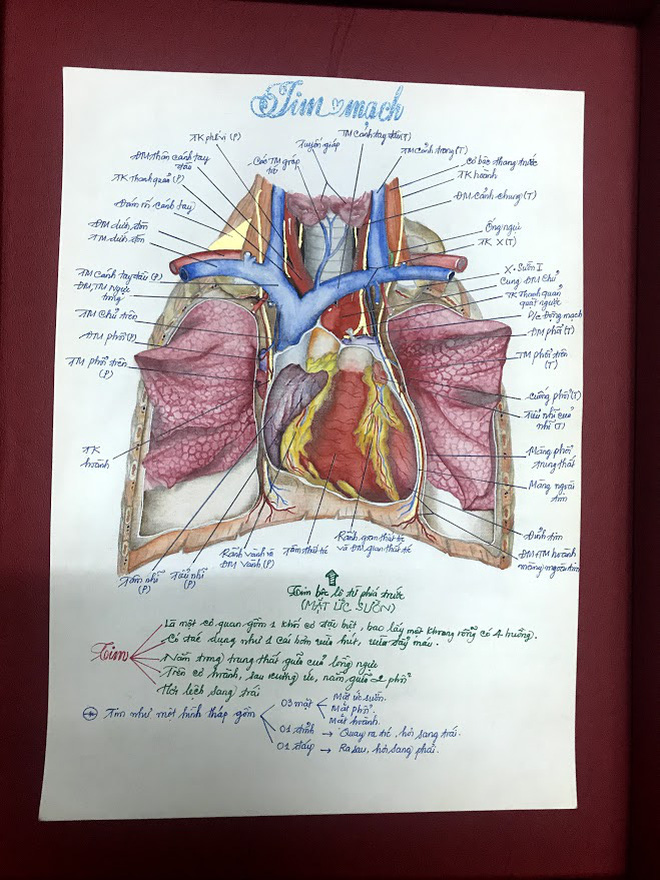 Tim mạch
TK phế vị (P)
ĐM thân cánh tay
đầu
TK Thanh quản (P)
Đám rối cánh tay
ĐM dưới đòn
TM dưới đòn
TM cánh tay đầu (P)
ĐM, TM ngực
trong
TM Chủ trên
ĐM phổi (P)
TM phổi trên
(P)
TK
hoành
Các TM giáp
Tuyến giáp
TM cánh tay đầu (T)
TM cảnh trong (T)
Cơ bậc thang trước
TK hoành
ĐM cảnh chung (T)
Ống ngực
TK X (T)
X. Sườn I
Cung ĐM Chủ
TK Thanh quản
quặt ngược
D/c Động mạch
ĐM phổi (T)
TM phổi trên
(T)
cuống phổi (T)
Tiểu nhĩ của
nhĩ (T)
Màng phổi
trung thất
Màng ngoài
tim
Đỉnh tim
ĐM, TM hoành
màng ngoài tim
Tâm nhĩ
(P)
Tiểu nhĩ
(P)
Rãnh vành và
ĐM vành (P)
Tâm thất
Rãnh gian thất tr
và ĐM gian thất tr
Tim bộc lộ từ phía trước
(MẶT ỨC SƯỜN)
Tim
Là một cơ quan gồm 1 khối cơ đặc biệt, bao lấy một khoang rỗng có 4 buồng.
Có tác dụng như 1 cái bơm vừa hút, vừa đẩy máu.
Nằm trong trung thất giữa của lồng ngực
Trên cơ hoành, sau xương ức, nằm giữa 2 phổi
Hơi lệch sang trái
Tim như một hình tháp gồm
03 mặt
Mặt ức sườn.
Mặt phổi.
Mặt hoành.
01 đỉnh → Quay ra trc, hơi sang trái.
01 đáy → Ra sau, hơi sang phải.